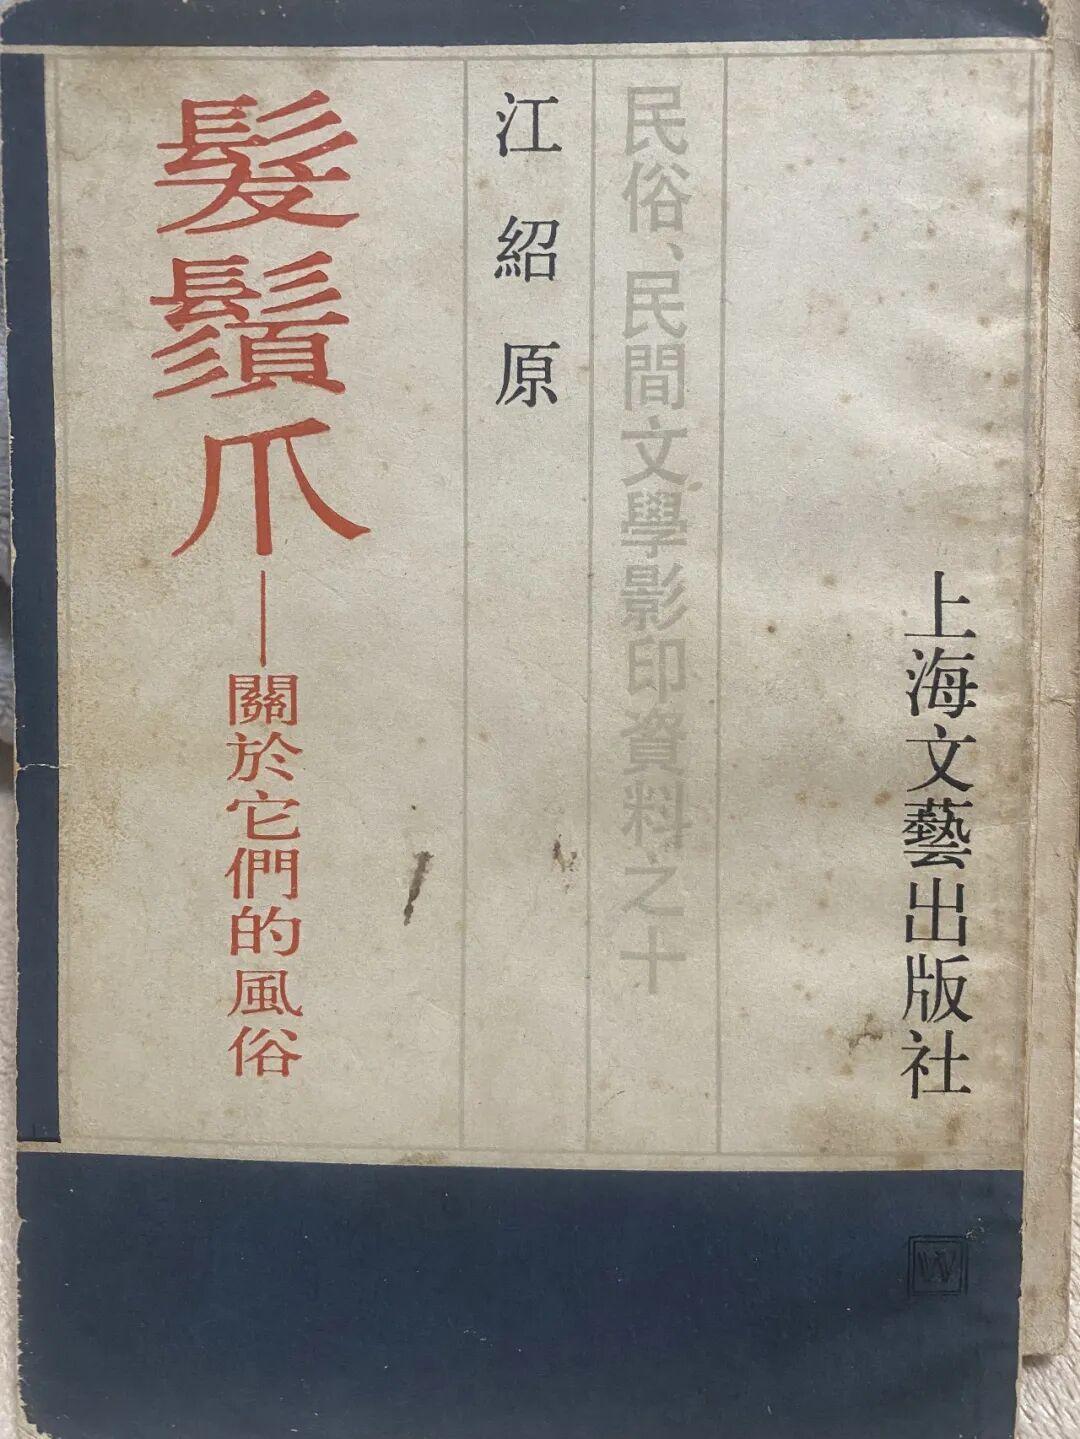 髮鬚爪——關於它們的風俗
江紹原
民俗、民間文學影印資料之十
上海文藝出版社
W